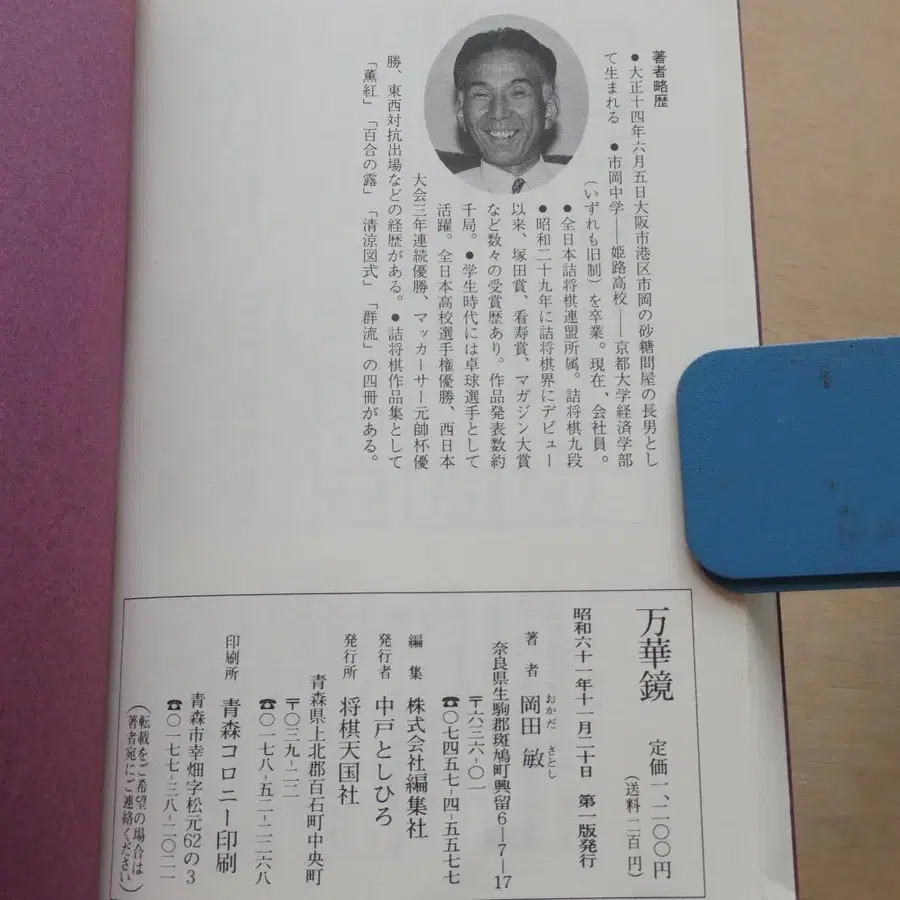 著者略歴
●大正十四年六月五日大阪市港区市岡の砂糖問屋の長男とし
て生まれる　●市岡中学——姫路高校——京都大学経済学部
（いずれも旧制）を卒業。現在、会社員。
●全日本詰将棋連盟所属。詰将棋九段
●昭和二十九年に詰将棋界にデビュー
以来、塚田賞、看寿賞、マガジン大賞
など数々の受賞歴あり。作品発表数約
千局。●学生時代には卓球選手として
活躍。全日本高校選手権優勝、西日本
大会三年連続優勝、マッカーサー元帥杯優
勝、東西対抗出場などの経歴がある。●詰将棋作品集として
「薫紅」「百合の露」「清涼図式」「群流」の四冊がある。
万華鏡　定価一、二〇〇円
（送料二百円）
昭和六十一年十一月二十日　第一版発行
著者　岡田　敏
おかだ　さとし
奈良県生駒郡斑鳩町興留6-7-17
〒六三六-〇一
☎〇七四五七-四-五五七七
編集　株式会社編集社
発行者　中戸としひろ
発行所　将棋天国社
青森県上北郡百石町中央町
〒〇三九-二二
☎〇一七八-五二-二二六八
印刷所　青森コロニー印刷
青森市幸畑字松元62の3
☎〇一七七-三八-二〇二一
（転載をご希望の場合は
著者宛にご連絡ください）